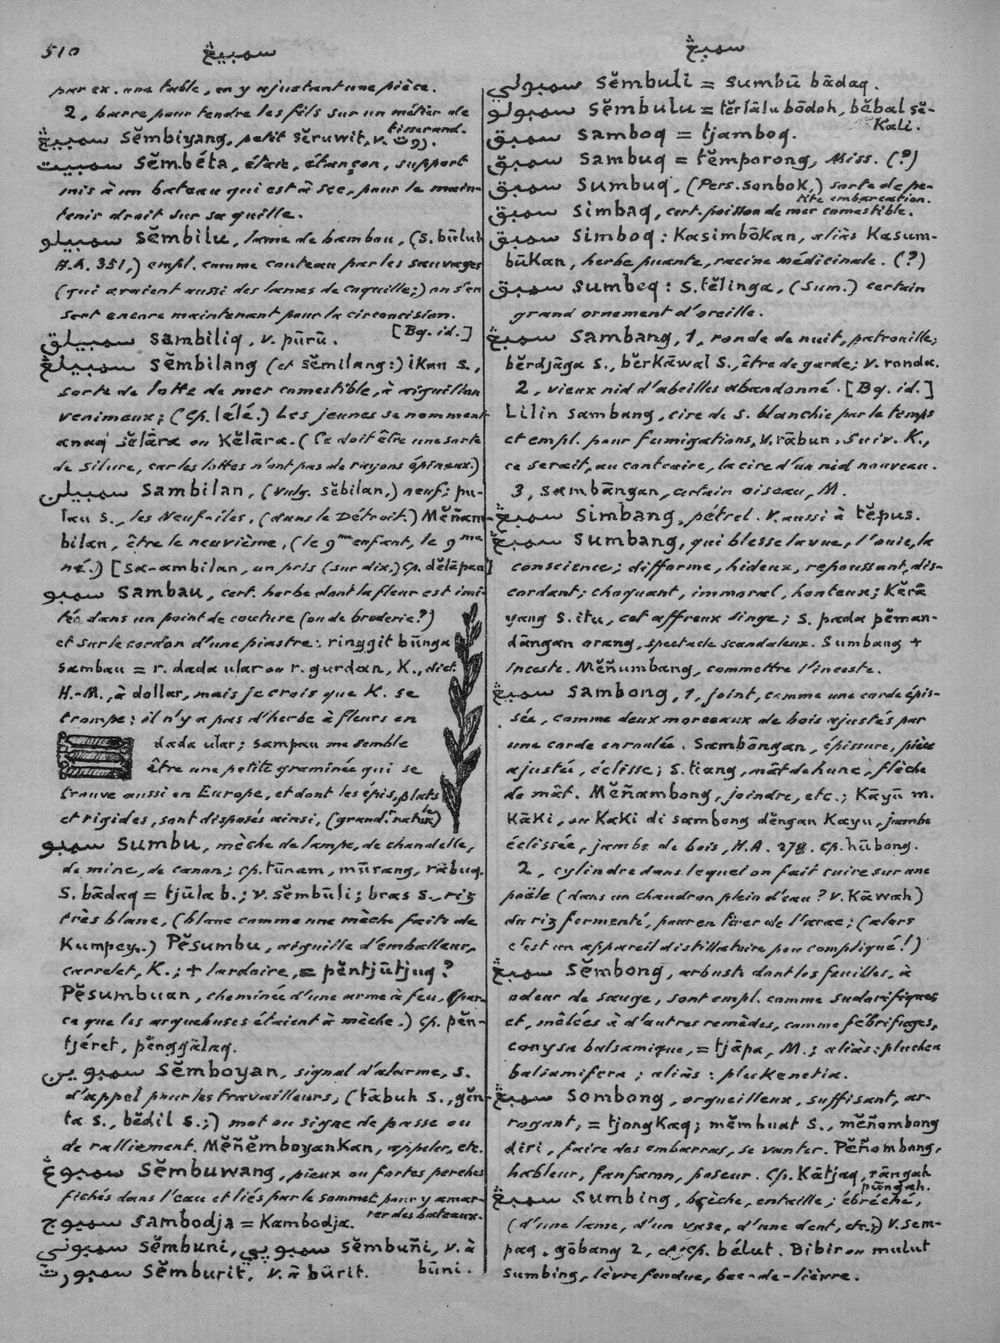 510
سمبيڠ
سمبڠ
par ex. une table, en y ajustant une pièce.
2, barre pour tendre les fils sur un métier de
tisserand.
سمبييڠ Sĕmbiyang, petit sĕruwit, v. روت.
سمبيت Sĕmbéta, étaie, étançon, support
mis à un bateau qui est à sec, pour le main-
tenir droit sur sa quille.
سمبيلو Sĕmbilu, lame de bambou, (S. būluh
H.A. 351,) empl. comme couteau par les sauvages
(qui avaient aussi des lames de coquille;) on s'en
sert encore maintenant pour la circoncision.
سمبيلق Sambiliq, v. pūrū. [Bg. id.]
سمبيلڠ Sĕmbilang (et sĕmilang:) ikan s.,
sorte de lotte de mer comestible, à aiguillon
venimeux; (cp. lélé.) Les jeunes se nomment
anaq sĕlāra ou Kĕlāra. (Ce doit être une sorte
de silure, car les lottes n'ont pas de rayons épineux.)
سمبيلن Sambilan, (vulg. Sĕbilan,) neuf; pu-
lau s., les Neuf-îles, (dans le Détroit.) Mĕñam-
bilan, être le neuvième, (le 9me enfant, le 9me
né.) [Sa-ambilan, un pris (sur dix,) cp. dĕlāpan]
سمبو Sambau, cert. herbe dont la fleur est imi-
tée dans un point de couture (ou de broderie?)
et sur le cordon d'une piastre: ringgit būnga
sambau = r. dada ular ou r. gurdan, K., dict.
H.-M., à dollar, mais je crois que K. se
trompe: il n'y a pas d'herbe à fleurs en
dada ular; sampau me semble
être une petite graminée qui se
trouve aussi en Europe, et dont les épis, plats
et rigides, sont disposés ainsi, (grand. natur.)
سمبو Sumbu, mèche de lampe, de chandelle,
de mine, de canon; cp. tūnam, mūsang, rābuq.
S. bādaq = tjūla b.; v. sĕmbūli; bras s., riz
très blanc, (blanc comme une mèche faite de
Kumpey.) Pĕsumbu, aiguille d'emballeur,
carrelet, K.; + lardoire, = pĕntjūtjuq?
Pĕsumbuan, cheminée d'une arme à feu, (par-
ce que les arquebuses étaient à mèche.) cp. pĕn-
tjéret, pĕnggālaq.
سمبوين Sĕmboyan, signal d'alarme, s.
d'appel pour les travailleurs, (tābuh s., gĕn-
ta s., bĕdil s.;) mot ou signe de passe ou
de ralliement. MĕñĕmboyanKan, appeler, etc.
سمبوڠ Sĕmbuwang, pieux ou fortes perches
fichés dans l'eau et liés par le sommet pour y amar-
rer des bateaux.
سمبوج Sambodja = Kambodja.
سمبوني Sĕmbuni, سمبويي Sĕmbuñi, v. à
būni.
سمبورت Sĕmburit, v. à būrit.
سمبولي Sĕmbuli = Sumbū bādaq.
سمبولو Sĕmbulu = tĕrlālu bōdoh, bĕbal sĕ-
Kali.
سمبق Samboq = tjamboq.
سمبق Sambuq = tĕmporong, Miss. (?)
سمبق Sumbuq, (Pers. sonbok,) sorte de pe-
tite embarcation.
سمبق Simbaq, cert. poisson de mer comestible.
سمبق Simboq: Kasimbōkan, aliàs Kasum-
būKan, herbe puante, racine médicinale. (?)
سمبق Sumbeq: S. tĕlinga, (Sum.) certain
grand ornement d'oreille.
سمبڠ Sambang, 1, ronde de nuit, patrouille;
bĕrdjāga s., bĕrkāwal s., être de garde; v. ronda.
2, vieux nid d'abeilles abandonné. [Bg. id.]
Lilin sambang, cire de s. blanchie par le temps
et empl. pour fumigations, v. rābun. Suiv. K.,
ce serait, au contraire, la cire d'un nid nouveau.
3, Sambāngan, certain oiseau, M.
سمبڠ Simbang, pétrel. V. aussi à tĕpus.
سمبڠ Sumbang, qui blesse la vue, l'ouïe, la
conscience; difforme, hideux, repoussant, dis-
cordant; choquant, immoral, honteux; Kĕrā
yang s. itu, cet affreux singe; s. pada pĕman-
dāngan orang, spectacle scandaleux. Sumbang +
Inceste. Mĕñumbang, commettre l'inceste.
سمبڠ Sambong, 1, joint, comme une corde épis-
sée, comme deux morceaux de bois ajustés par
une corde enroulée. Sambōngan, épissure, pièce
ajustée, éclisse; s. tiang, mât de hune, flèche
de mât. Mĕñambong, joindre, etc.; Kāyū m.
KāKi, ou KaKi di sambong dĕngan Kayu, jambe
éclissée, jambe de bois, H.A. 278. cp. hūbong.
2, cylindre dans lequel on fait cuire sur une
poële (dans un chaudron plein d'eau? v. Kāwah)
du riz fermenté, pour en tirer de l'arac; (alors
c'est un appareil distillatoire peu compliqué!)
سمبڠ Sĕmbong, arbuste dont les feuilles, à
odeur de sauge, sont empl. comme sudorifiques
et, mêlées à d'autres remèdes, comme fébrifuges,
conysa balsamique, = tjāpa, M.; aliàs: pluchea
balsamifera; aliàs: plukenetia.
سمبڠ Sombong, orgueilleux, suffisant, ar-
rogant, = tjongKaq; mĕmbuat s., mĕñombong
diri, faire des embarras, se vanter. Pĕñombong,
hâbleur, fanfaron, poseur. Cp. Kātjaq, rāngah
pūngah.
سمبڠ Sumbing, brèche, entaille; ébréché,
(d'une lame, d'un vase, d'une dent, etc.;) v. sem-
paq, gōbang 2, et cp. bélut. Bibir ou mulut
Sumbing, lèvre fendue, bec-de-lièvre.